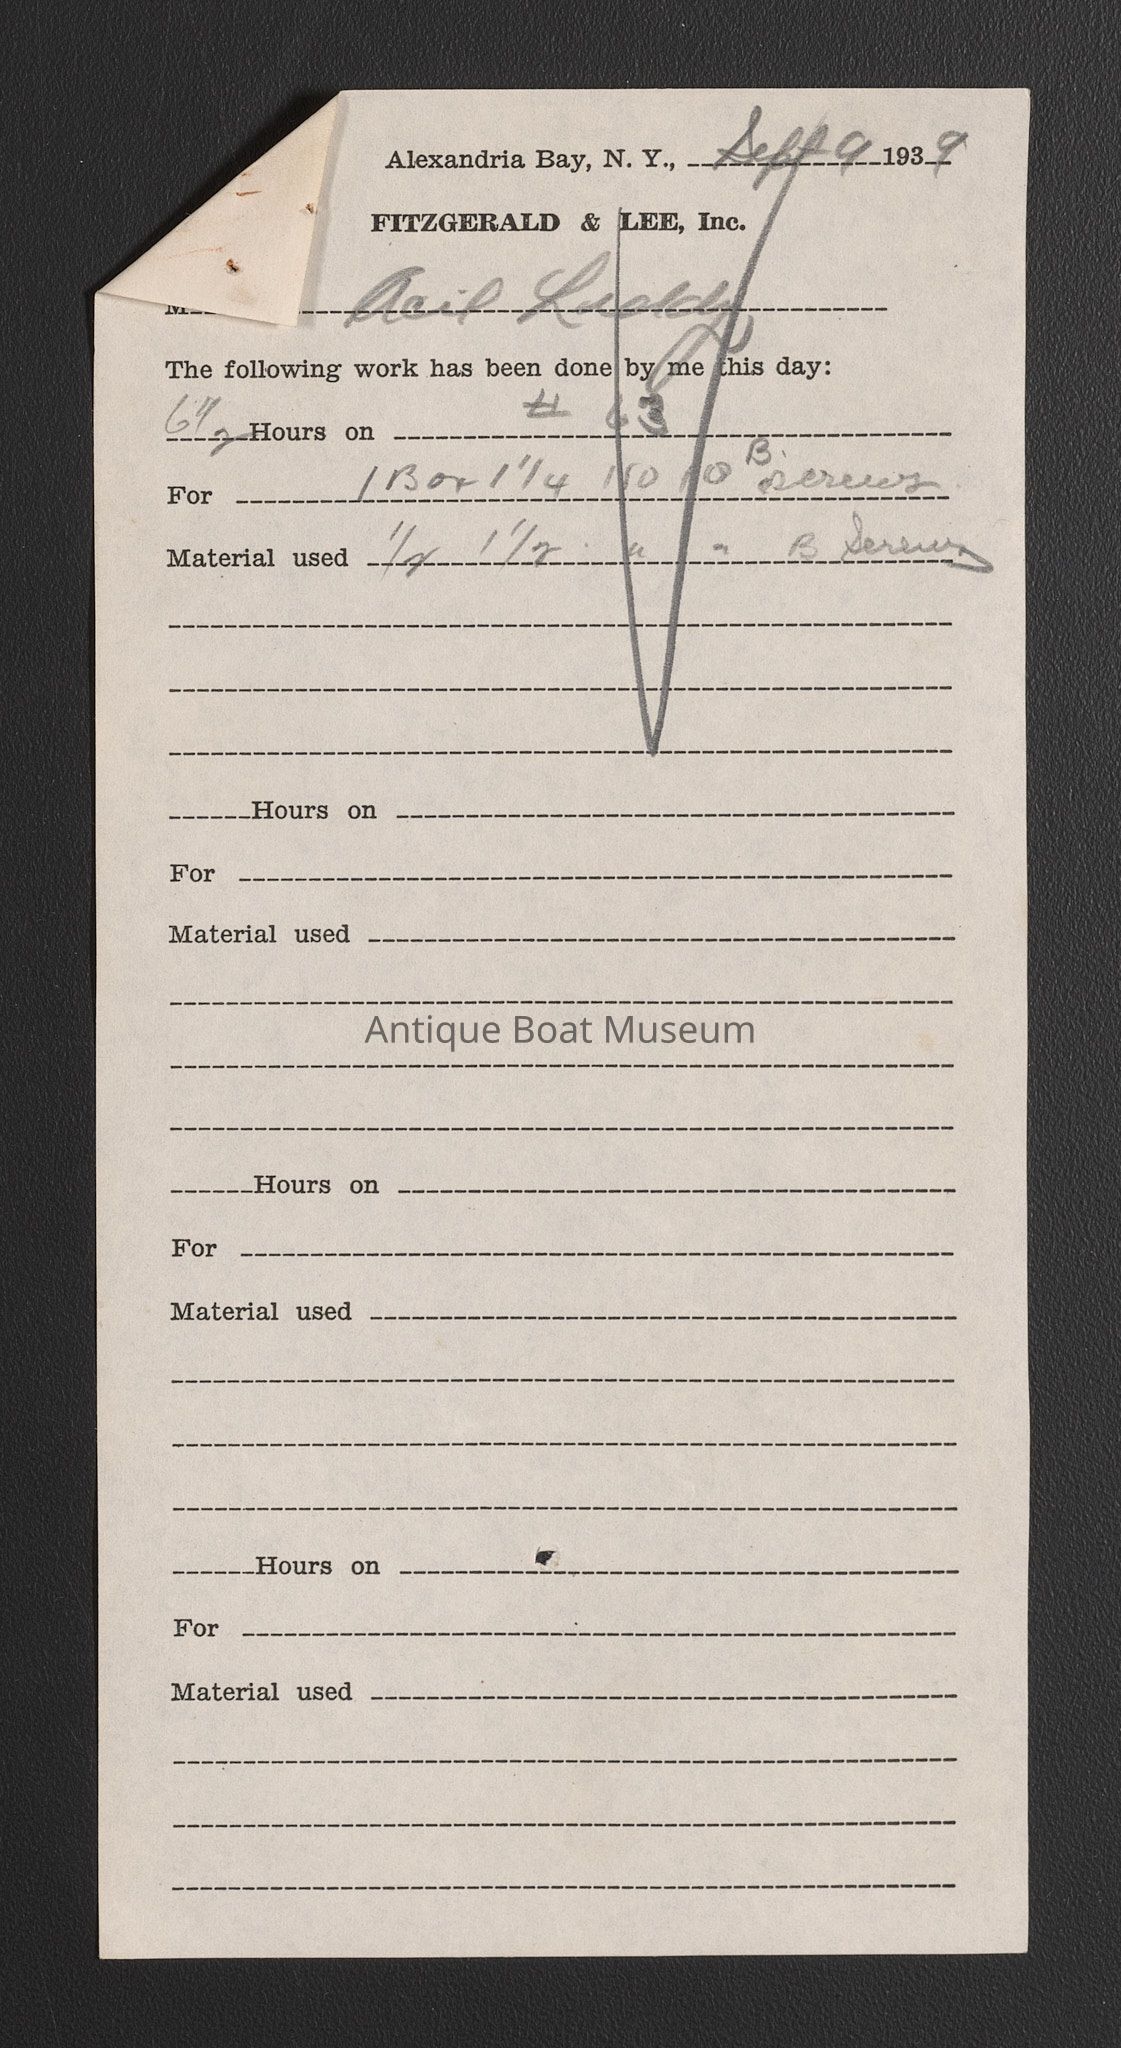 Alexandria Bay, N. Y., Sept 9 1939
FITZGERALD & LEE, Inc.
M
The following work has been done by me this day:
6 1/2 Hours on # 63
For 1 Box 1 1/4 10 B screws
Material used 1/2 1 1/2 " " B Screws
Hours on
For
Material used
Antique Boat Museum
Hours on
For
Material used
Hours on
For
Material used